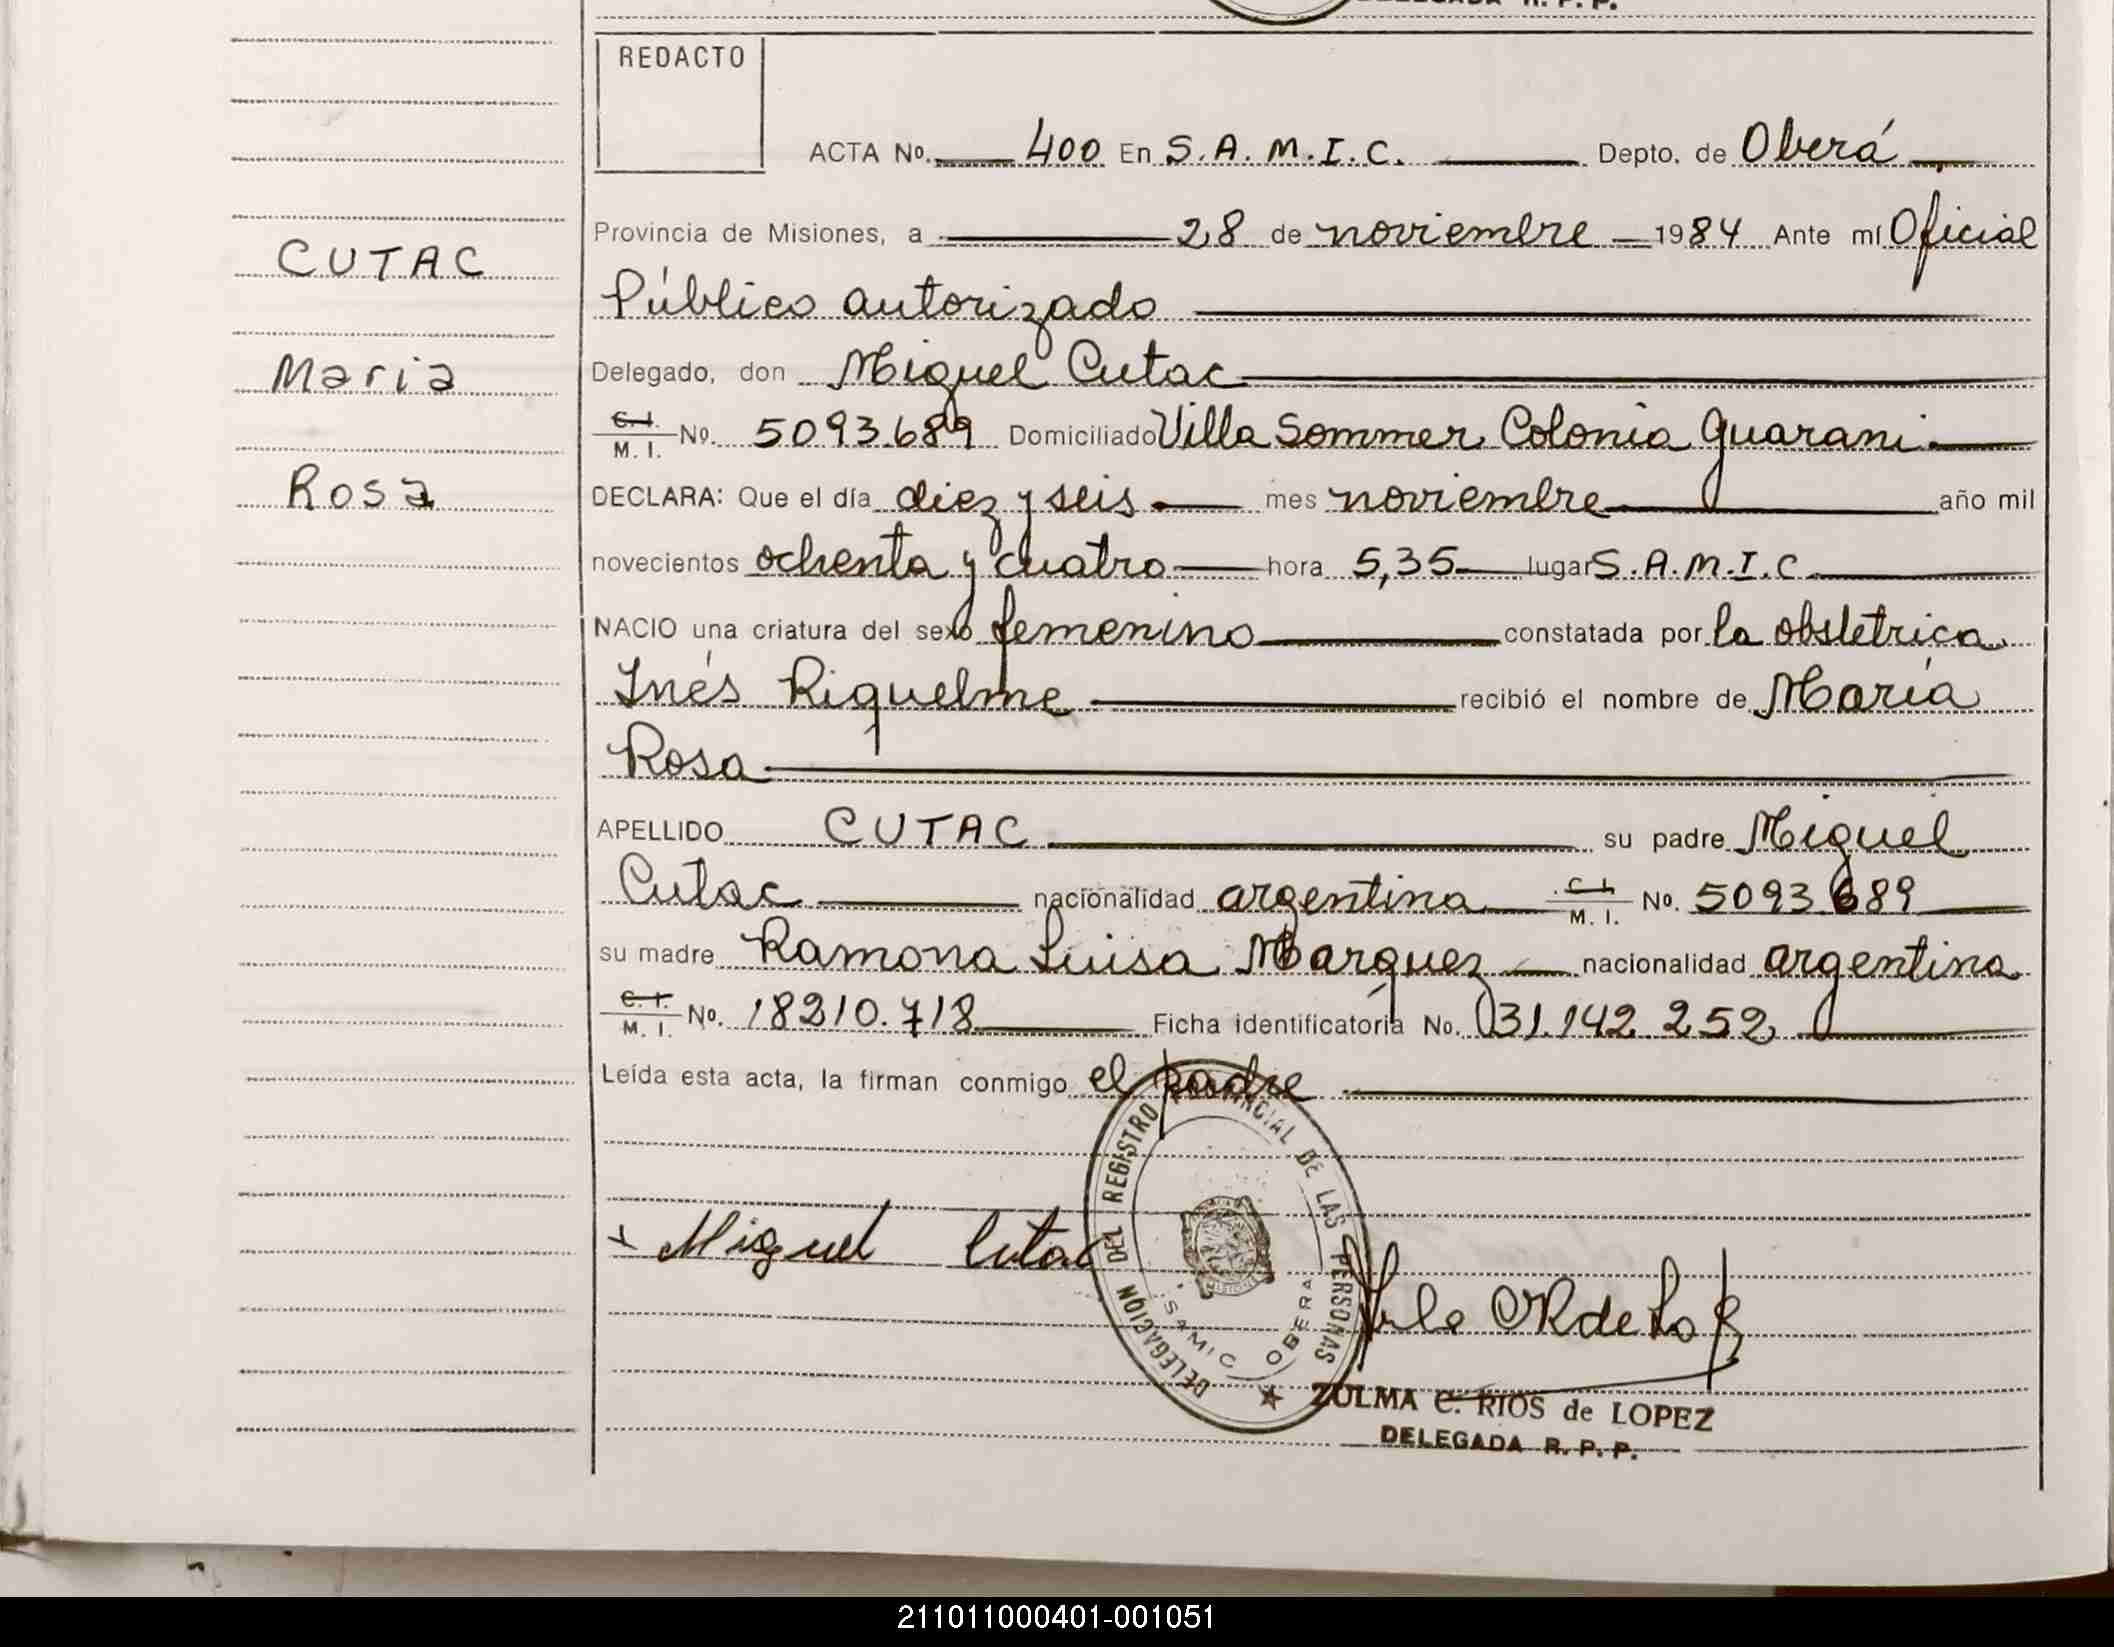 DELEGADA R. P. P.
REDACTO
ACTA No. 400 En S. A. M. I. C. Depto. de Oberá
Provincia de Misiones, a 28 de noviembre 1984 Ante mí Oficial
CUTAC
Público autorizado
Delegado, don Miguel Cutac
Maria
C. I.
M. I. No. 5093.689 Domiciliado Villa Sommer Colonia Guarani
Rosa
DECLARA: Que el día diez y seis mes noviembre año mil
novecientos ochenta y cuatro hora 5,35 lugar S. A. M. I. C
NACIO una criatura del sexo femenino constatada por la obstetrica
Inés Riquelme recibió el nombre de María
Rosa
APELLIDO CUTAC su padre Miguel
Cutac nacionalidad argentina C. I. M. I. No. 5093 689
su madre Ramona Luisa Marquez nacionalidad argentina
C. I.
M. I. No. 18210.718 Ficha identificatoria No. 31.142.252
Leída esta acta, la firman conmigo el padre
DELEGACION DEL REGISTRO PROVINCIAL DE LAS PERSONAS
SAMIC OBERA
x Miguel Cutac
ZULMA C. RIOS de LOPEZ
DELEGADA R. P. P.
211011000401-001051